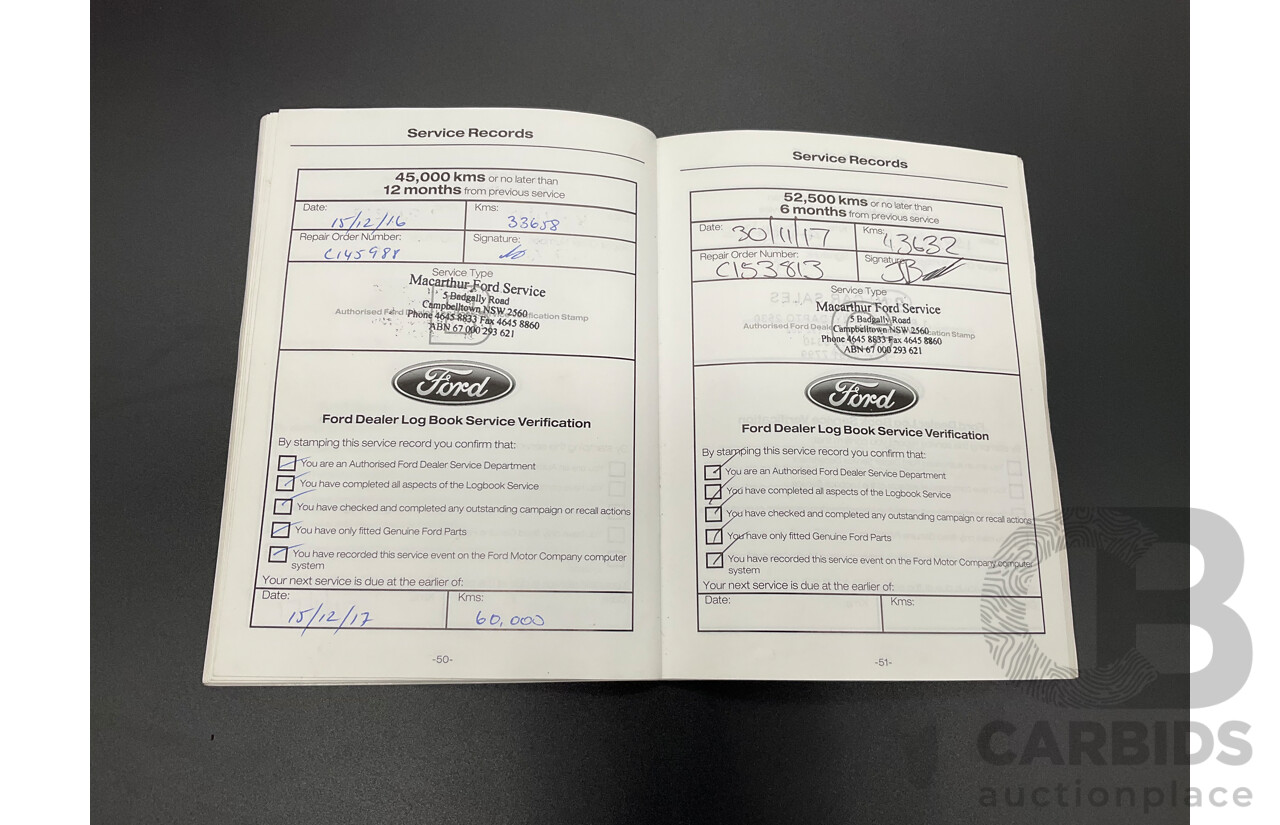 Service Records
45,000 kms or no later than
12 months from previous service
Date:
15/12/16
Kms:
33658
Repair Order Number:
C145988
Signature:
Service Type
Macarthur Ford Service
5 Badgally Road
Campbelltown NSW 2560
Phone 4645 8833 Fax 4645 8860
ABN 67 000 293 621
Ford
Ford Dealer Log Book Service Verification
By stamping this service record you confirm that:
You are an Authorised Ford Dealer Service Department
You have completed all aspects of the Logbook Service
You have checked and completed any outstanding campaign or recall actions
You have only fitted Genuine Ford Parts
You have recorded this service event on the Ford Motor Company computer
system
Your next service is due at the earlier of:
Date:
15/12/17
Kms:
60,000
-50-
Service Records
52,500 kms or no later than
6 months from previous service
Date: 30/11/17
Kms: 43632
Repair Order Number:
C153813
Signature:
JB
Service Type
Macarthur Ford Service
5 Badgally Road
Campbelltown NSW 2560
Phone 4645 8833 Fax 4645 8860
ABN 67 000 293 621
Ford
Ford Dealer Log Book Service Verification
By stamping this service record you confirm that:
You are an Authorised Ford Dealer Service Department
You have completed all aspects of the Logbook Service
You have checked and completed any outstanding campaign or recall actions
You have only fitted Genuine Ford Parts
You have recorded this service event on the Ford Motor Company computer
system
Your next service is due at the earlier of:
Date:
Kms:
-51-
CB
CARBIDS
auctionplace